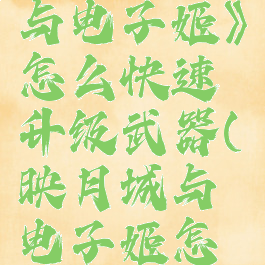 与电子姬》
怎么快速
升级武器(
映月城与
电子姬怎